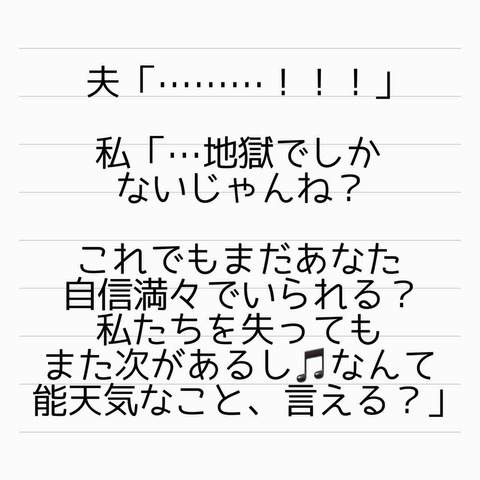 夫「………！！！」
私「…地獄でしか
ないじゃんね？
これでもまだあなた
自信満々でいられる？
私たちを失っても
また次があるし🎵なんて
能天気なこと、言える？」